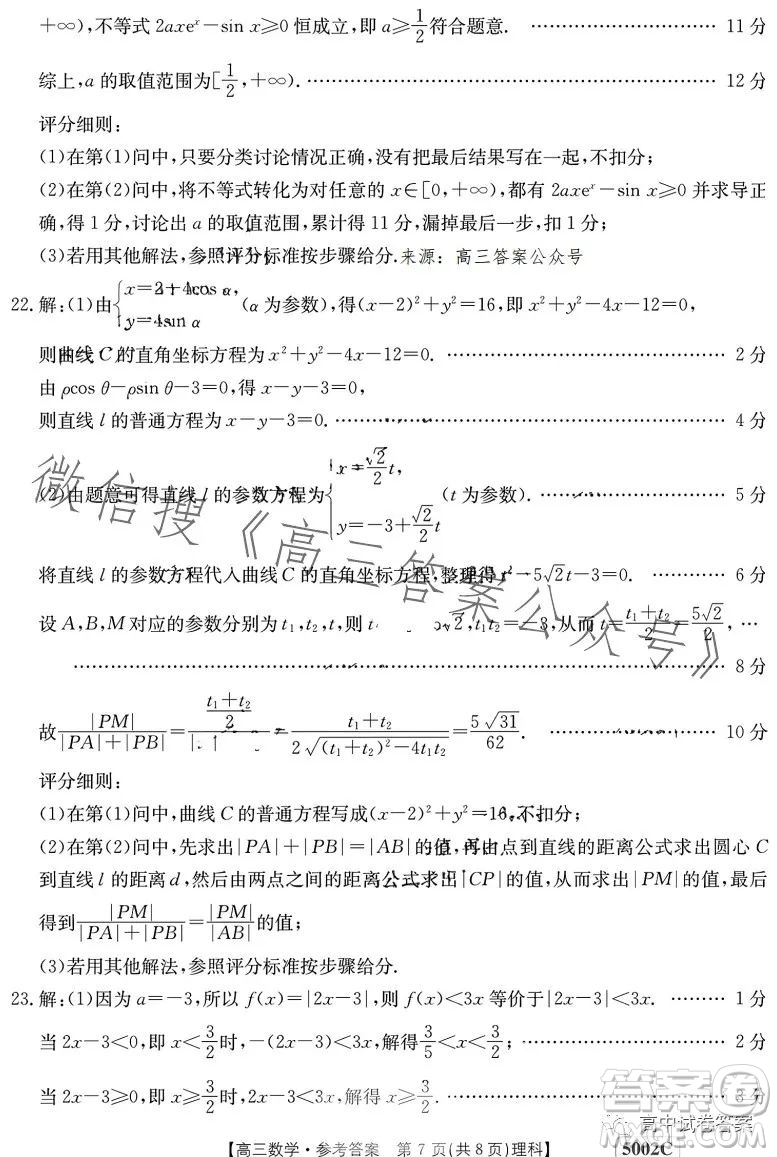 +∞),不等式 2axeˣ−sin x≥0 恒成立,即 a≥1/2 符合题意. 11 分
综上,a 的取值范围为[1/2,+∞). 12 分
评分细则:
(1)在第(1)问中,只要分类讨论情况正确,没有把最后结果写在一起,不扣分;
(2)在第(2)问中,将不等式转化为对任意的 x∈[0,+∞),都有 2axeˣ−sin x≥0 并求导正
确,得 1 分,讨论出 a 的取值范围,累计得 11 分,漏掉最后一步,扣 1 分;
(3)若用其他解法,参照评分标准按步骤给分. 来源:高三答案公众号
22. 解:(1)由{x=2+4cos α, y=4sin α (α 为参数),得(x−2)²+y²=16,即 x²+y²−4x−12=0,
则曲线 C 的直角坐标方程为 x²+y²−4x−12=0. 2 分
由 ρcos θ−ρsin θ−3=0,得 x−y−3=0,
则直线 l 的普通方程为 x−y−3=0. 4 分
(2)由题意可得直线 l 的参数方程为{x=√2/2 t, y=−3+√2/2 t (t 为参数). 5 分
将直线 l 的参数方程代入曲线 C 的直角坐标方程,整理得 t²−5√2t−3=0. 6 分
设 A,B,M 对应的参数分别为 t₁,t₂,t,则 t √2,t₁t₂=−3,从而 t=(t₁+t₂)/2=5√2/2, …
8 分
故 |PM|/(|PA|+|PB|)=((t₁+t₂)/2)/ =(t₁+t₂)/(2√((t₁+t₂)²−4t₁t₂))=5√31/62. 10 分
评分细则:
(1)在第(1)问中,曲线 C 的普通方程写成(x−2)²+y²=16,不扣分;
(2)在第(2)问中,先求出|PA|+|PB|=|AB|的值,再由点到直线的距离公式求出圆心 C
到直线 l 的距离 d,然后由两点之间的距离公式求出|CP|的值,从而求出|PM|的值,最后
得到 |PM|/(|PA|+|PB|)=|PM|/|AB| 的值;
(3)若用其他解法,参照评分标准按步骤给分.
23. 解:(1)因为 a=−3,所以 f(x)=|2x−3|,则 f(x)<3x 等价于|2x−3|<3x. 1 分
当 2x−3<0,即 x<3/2 时,−(2x−3)<3x,解得 3/5<x<3/2; 2 分
当 2x−3≥0,即 x≥3/2 时,2x−3<3x,解得 x≥3/2. 3 分
【高三数学·参考答案 第 7 页(共 8 页)理科】 5002C
微信搜《高三答案公众号》
答案卷
高中试卷答案